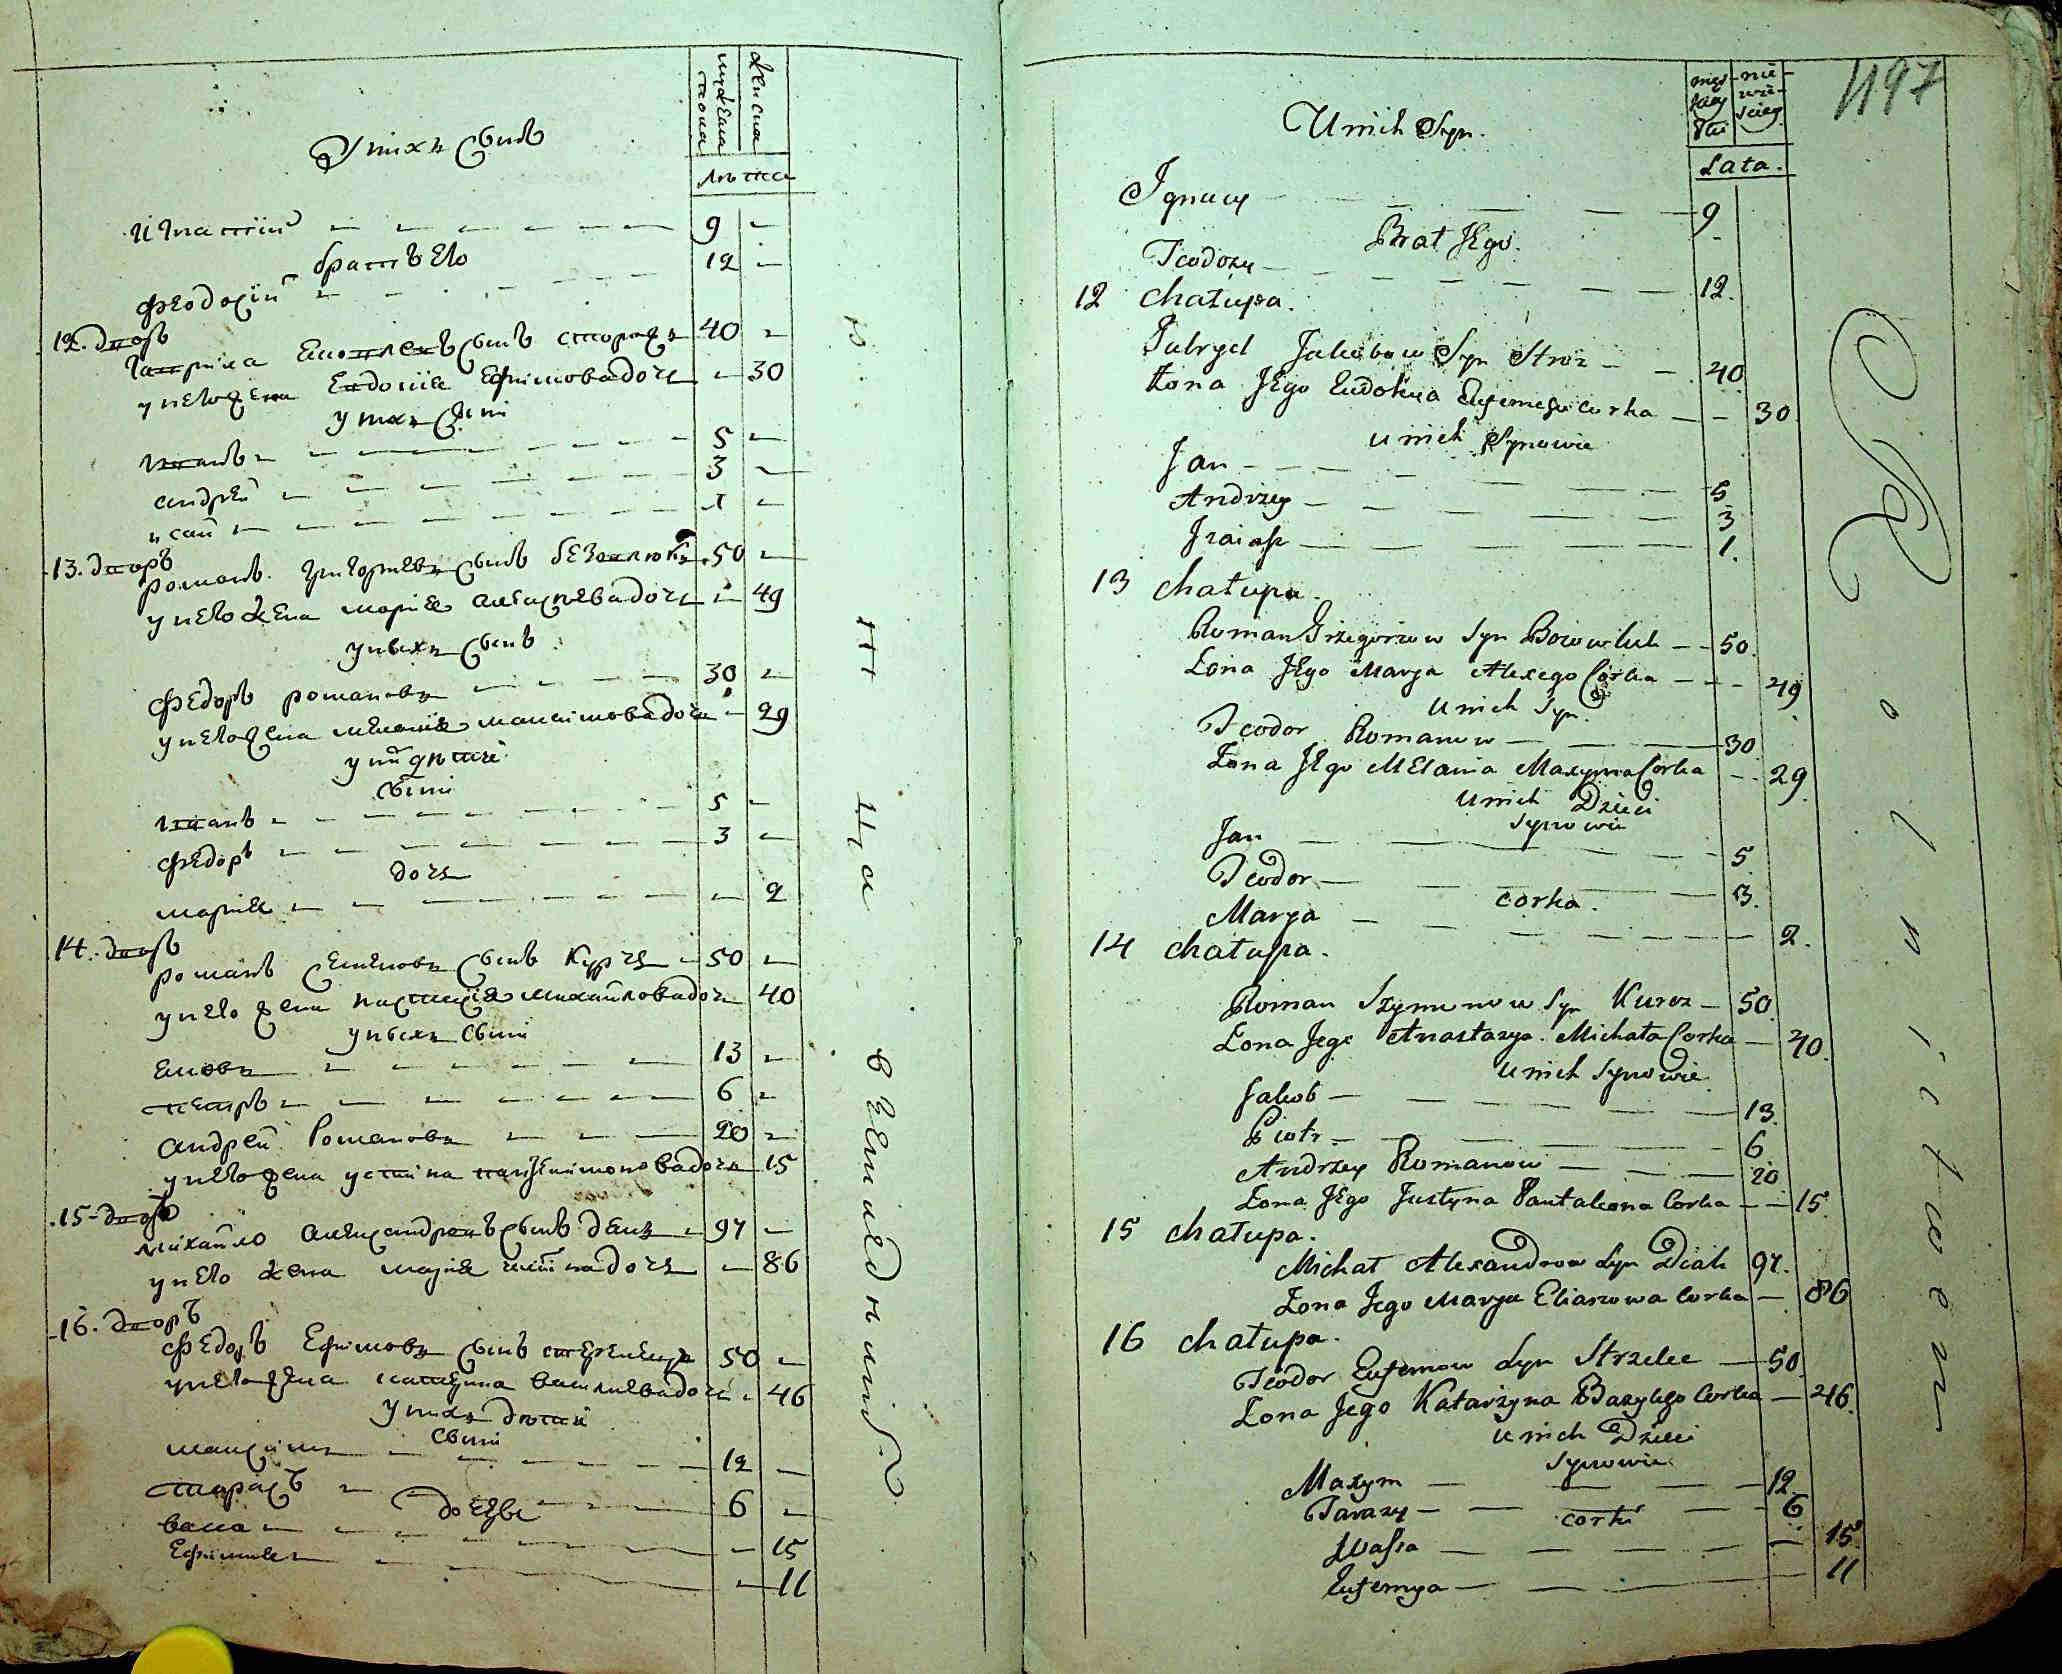 У нихъ сынъ
мужеска
пола
женска
лѣта
Игнатій 9 —
братъ его
Феодосій 12 —
12. дворъ
Гаврила Яковлевъ сынъ сторожъ 40 —
у него жена Евдокія Ефимова дочь — 30
у нихъ сыни
Иванъ 5 —
Андрей 3 —
Исай 1 —
13. дворъ
Романъ Григорьевъ сынъ 50 —
у него жена Марія Алексѣева дочь — 49
у нихъ сынъ
Федоръ Романовъ 30 —
у него жена Меланія Максимова дочь — 29
у них дѣти
сыни
Иванъ 5 —
Федоръ 3 —
дочь
Марія — 2
14. дворъ
Романъ Семеновъ сынъ Курчъ 50 —
у него жена Настасія Михайлова дочь — 40
у нихъ сыни
Яковъ 13 —
Петръ 6 —
Андрей Романовъ 20 —
у него жена Устина Пантелимонова дочь 15
15. дворъ
Михайло Александровъ сынъ Дякъ 97 —
у него жена Марія дочь — 86
16. дворъ
Федоръ Ефимовъ сынъ 50 —
у него жена Катерина Василиева дочь — 46
у нихъ дѣти
сыни
Максимъ 12 —
Тарасъ 6 —
дочери
Васса — 15
Ефимия — 11
497
U nich Syn.
męz
kiey
Płci
nie
wie
sciey
Lata.
Ignacy 9
Brat Jego.
Teodozy 12.
12 Chałupa.
Gabryel Jakobow Syn Stroz 40
Żona Jego Eudokia Eufemego corka — 30
u nich Synowie
Jan 5
Andrzey 3
Izaiasz 1.
13 Chałupa.
Roman Grzegorzow Syn 50.
Żona Jego Marya Alexego Corka — 49
U nich Syn.
Teodor Romanow 30
Żona Jego Melania Maxyma Corka — 29.
U nich Dzieci
Synowie
Jan 5
Teodor 3.
corka.
Marya 2.
14 Chałupa.
Roman Szymonow Syn Kurcz 50.
Żona Jego Anastazya Michała Corka — 40.
U nich Synowie
Jakob 13.
Piotr 6
Andrzey Romanow 20
Żona Jego Justyna Pantaleona Corka — 15.
15 Chałupa.
Michał Alexandrow Syn Diak 97.
Żona Jego Marya Eliaszowa Corka — 86
16 Chałupa.
Teodor Eufemow Syn Strzelec 50.
Żona Jego Katarzyna Bazylego Corka — 46.
u nich Dzieci
Synowie
Maxym 12
Tarazy 6
corki
Wassa — 15
Eufemya — 11